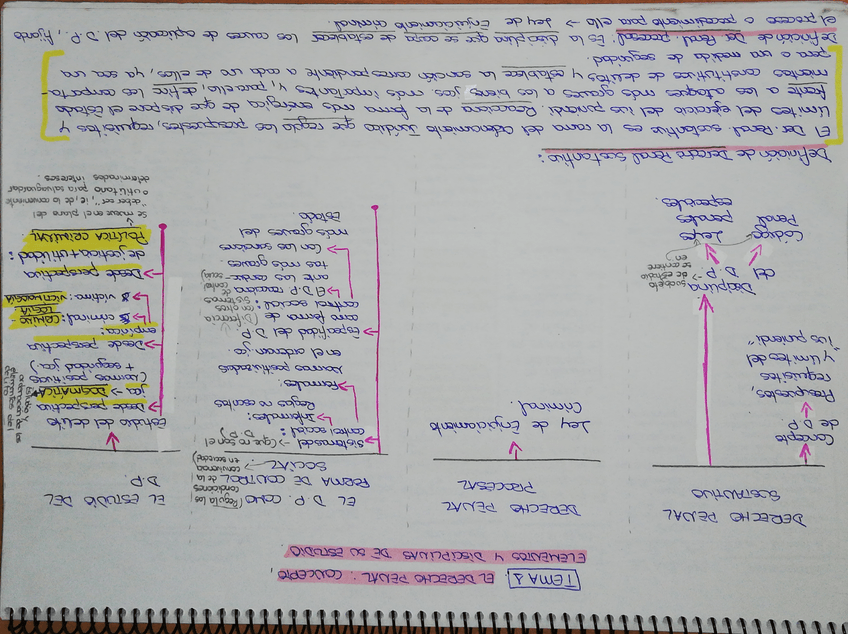 TEMA 1 EL DERECHO PENAL: CONCEPTO,
ELEMENTOS Y DISCIPLINAS DE SU ESTUDIO
DERECHO PENAL
SUSTANTIVO
Concepto
de D.P.
Presupuestos,
requisitos
y límites del
"ius puniendi"
Disciplina
del D.P.
su objeto
de estudio
se contiene
en
Código
Penal
Leyes
penales
especiales
DERECHO PENAL
PROCESAL
Ley de Enjuiciamiento
Criminal.
EL D.P. COMO
FORMA DE CONTROL
SOCIAL
(Regula las
condiciones
de la
convivencia
en sociedad)
Sistemas del
control social
(que no son el
D.P.)
Informales:
Reglas no escritas
Formales:
normas positivizadas
en el ordenam. jco.
Especificidad del D.P.
como forma de
control social:
(Diferencia
con otros
sistemas
de control
social)
El D.P. reacciona
ante las conduc-
tas más graves
con las sanciones
más graves del
Estado.
EL ESTUDIO DEL
D.P.
Estudio del delito
Desde perspectiva
jca → DOGMÁTICA
(normas positivas
+ seguridad jca.)
Desde perspectiva
empírica:
criminal: CRIMINO-
LOGÍA
víctima: VICTIMOLOGÍA
Desde perspectiva
de justicia + utilidad:
POLÍTICA CRIMINAL
Se mueve en el plano del
"deber ser", ie, de la conveniente
o utilitario para salvaguardar
determinados intereses.
Definición de Derecho Penal Sustantivo:
El Der. Penal sustantivo es la rama del Ordenamiento Jurídico que regula los presupuestos, requisitos, y
límites del ejercicio del ius puniendi. Reacciona de la forma más enérgica de que dispone el Estado
frente a los ataques más graves a los bienes jcos. más importantes y, para ello, define los comporta-
mientos constitutivos de delitos y establece la sanción correspondiente a cada uno de ellos, ya sea una
pena o una medida de seguridad.
Definición de Penal Procesal: Es la disciplina que se encarga de establecer los cauces de aplicación del D.P., fijando
el proceso o procedimiento para ello → Ley de Enjuiciamiento Criminal.